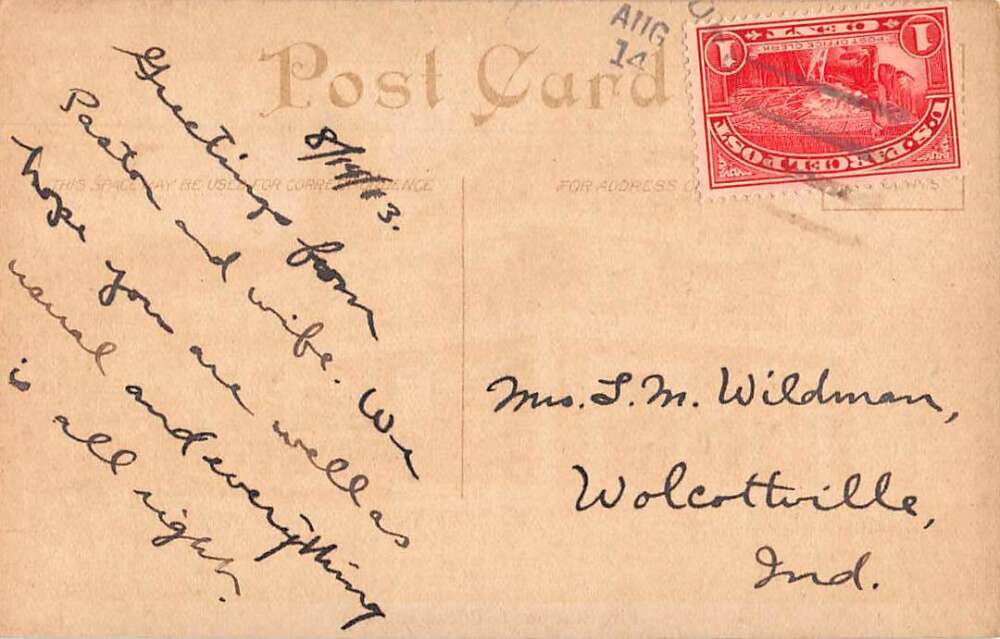 Post Card
AUG
14
1 1
ONE CENT
POST OFFICE CLERK
U.S. PARCEL POST
THIS SPACE MAY BE USED FOR CORRESPONDENCE
FOR ADDRESS
8/14/13.
Greetings from
Pastor and wife. We
hope you are well as
usual and everything
is all right.
Mrs. L. M. Wildman,
Wolcottville,
Ind.